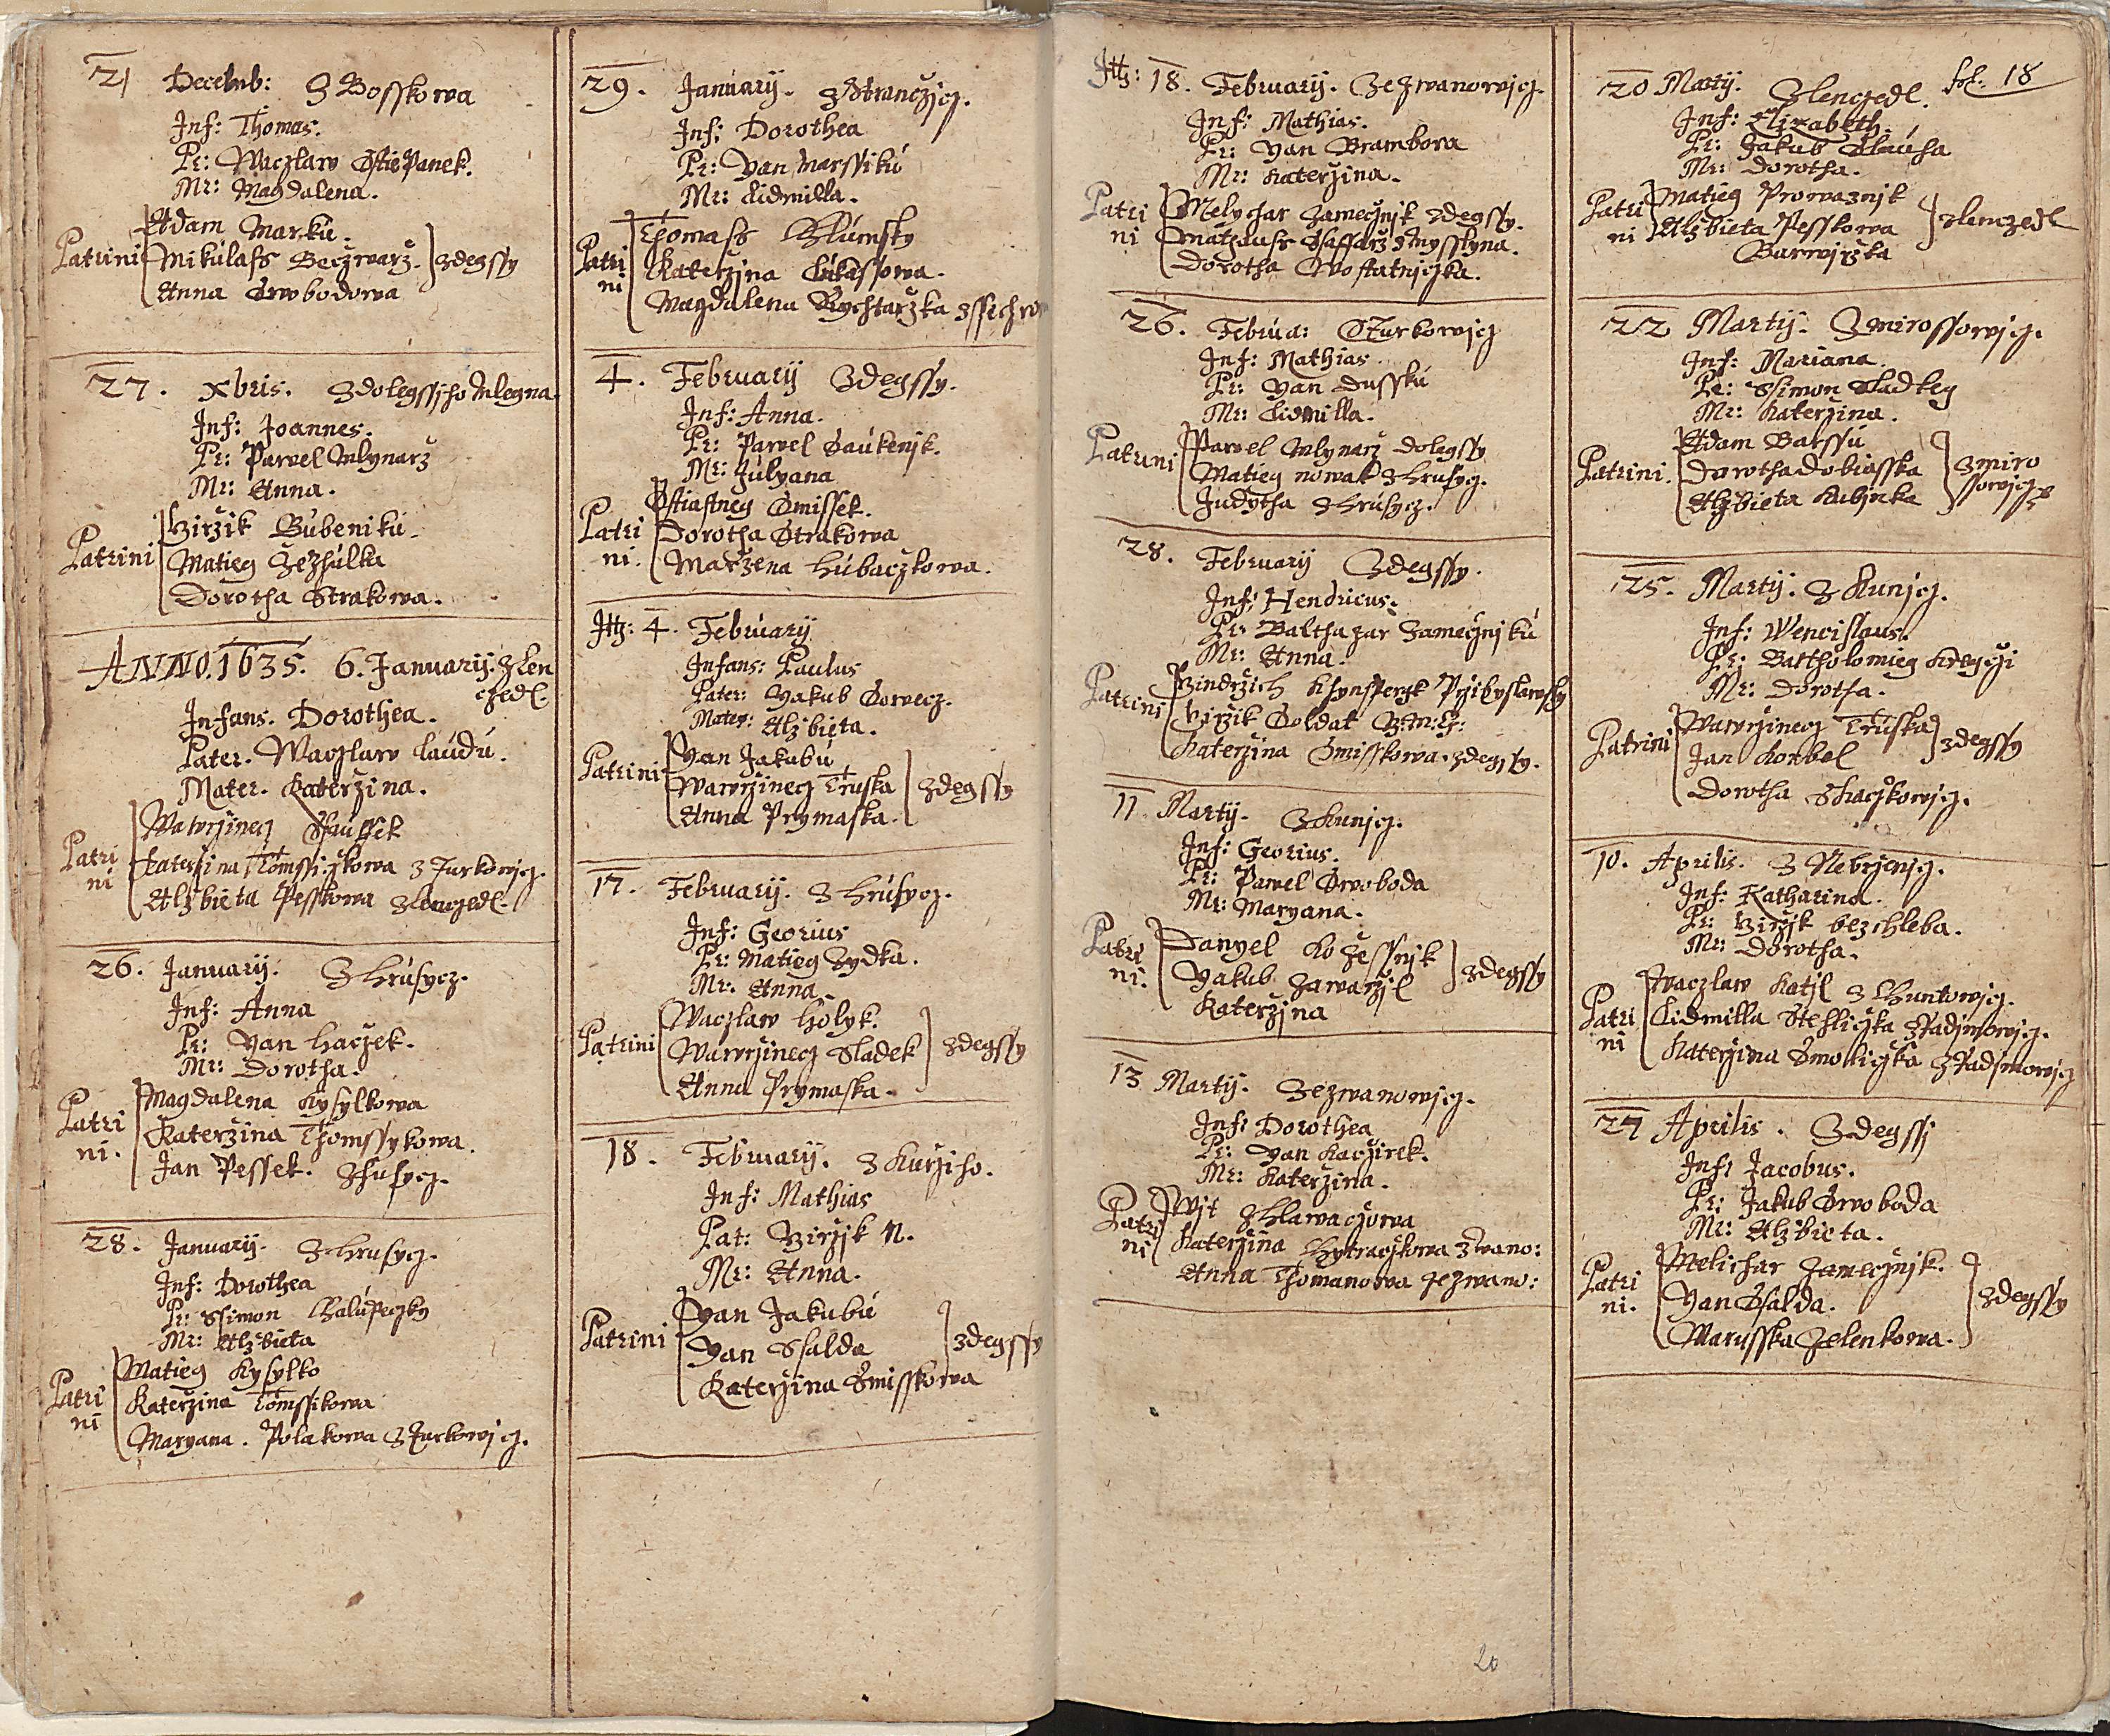 21 Decemb: Z Bosskowa
Inf: Thomas.
Pr: Waczlaw Sstiepanek.
Mr: Magdalena.
Patrini Adam Marku.
Mikulass Beczwarz. zdegssy
Anna Swobodowa
27. xbris. Zdolegssyho Mlegna.
Inf: Joannes.
Pr: Pawel Mlynarz
Mr: Anna.
Patrini Girzik Bubeniku.
Matieg Zezhulka
Dorotha Strakowa.
ANNO. 1635. 6. Januarij. Zlen
czedl
Infans. Dorothea.
Pater. Waczlaw Laudu.
Mater. Katerzina.
Patri Wawrzinecz
ni Katerzina z Turkowicz.
Alzbieta Pesskowa zlenczedl.
26. Januarij. Z Hrusycz.
Inf: Anna
Pr: Yan Haczek.
Mr: Dorotha.
Patri Magdalena Kysylkowa
ni. Katerzina Thomssykowa.
Jan Pessek.
28. Januarij. Z Hrusycz.
Inf: Dorothea
Pr: Ssimon Chalupeczky
Mr: Alzbieta
Patri Matieg Kysylko
ni Katerzina Tomssikowa
Maryana. Polakowa Z Turkowicz.
29. Januarij. z Stranczicz.
Inf: Dorothea
Pr: Yan Marssiku
Mr: Lidmilla.
Patri Thomass Chlumsky
ni Katerzina Lukassowa.
Magdalena Rychtarzka
4. February Zdegssy.
Inf: Anna.
Pr: Pawel Saukenik.
Mr: Julyana
Patri Sstiastneg Smissek.
ni. Dorotha Strakowa
Marzena Hubaczkowa.
Itz: 4. February
Infans: Paulus
Pater: Yakub Sswecz.
Mater: Alzbieta.
Patrini Yan Jakubu
Wawrzinecz Truska zdegssy
Anna Prymaska.
17. February. Z Hrusycz.
Inf: Georius
Pr: Matieg Zydka.
Mr: Anna
Patrini Waczlaw Holyk.
Wawrzinecz Sladek zdegssy
Anna Prymaska.
18. February. Z Kurziho.
Inf: Mathias
Pat: Girzik N.
Mr: Anna.
Patrini Yan Jakubu
Yan Ssalda zdegssy
Katerzina Smisskowa
Itz: 18. February. Zezwanowicz.
Inf: Mathias.
Pr: Yan Brambora
Mr: Katerzina.
Patri Melychar Zamecznik zdegssy.
ni Mathauss Ssaffarz z Mysslyna.
Dorotha
26. Februa: Z Turkowicz
Inf: Mathias.
Pr: Yan Dussku
Mr: Lidmilla.
Patrini Pawel Mlynarz dolegssy
Matieg Nowak z Hrusycz.
Judytha z Hrusycz.
28. February Zdegssy.
Inf: Hendricus.
Pr: Balthazar Zameczniku
Mr: Anna.
Patrini Gindrzich Przibyslawsky
Girzik Soldat
Katerzina Smisskowa. zdegssy.
11 Martij. Z Kunicz.
Inf: Georius.
Pr: Pawel Swoboda
Mr: Maryana.
Patri Danyel Kozessnik
ni. Yakub Zawarzil zdegssy
Katerzina
13 Martij. Zezwanowicz.
Inf: Dorothea
Pr: Yan Kaczirek.
Mr: Katerzina.
Patri Wit z Hlawaczowa
ni Katerzina Hytraczkowa Zwano:
Anna Thomanowa zezwano:
20
20 Martij. Zlenczedl. fol: 18
Inf: Elizabeth.
Pr: Jakub Slauha
Mr: Dorotha.
Patri Matieg Prowaznik
ni Alzbieta Pesskowa zlenczedl
Barwirzka
22 Martij. Zmirossowicz.
Inf: Mariana.
Pr: Ssimon Sladkey
Mr: Katerzina.
Patrini. Adam Bartssu
Dorotha Dobiasska Zmiro
Alzbieta Kubinka ssowicz
25. Martij. Z Kunicz.
Inf: Wencislaus.
Pr: Bartholomieg Kreyczi
Mr: Dorotha.
Patrini Wawrzinecz Truska
Jan Korbel zdegssy
Dorotha
10. Aprilis. Z Nebrzenicz.
Inf: Katharina.
Pr: Girzik bezchleba.
Mr: Dorotha.
Patri Waczlaw Katil z Chuntowicz.
ni Lidmilla Stehliczka z Radimowicz.
Katerzina Smoliczka z Radimowicz
24 Aprilis. Zdegssj
Inf: Jacobus.
Pr: Jakub Swoboda
Mr: Alzbieta.
Patri Melichar Zamecznik.
ni. Yan Ssalda. zdegssy
Marusska Zelenkowa.